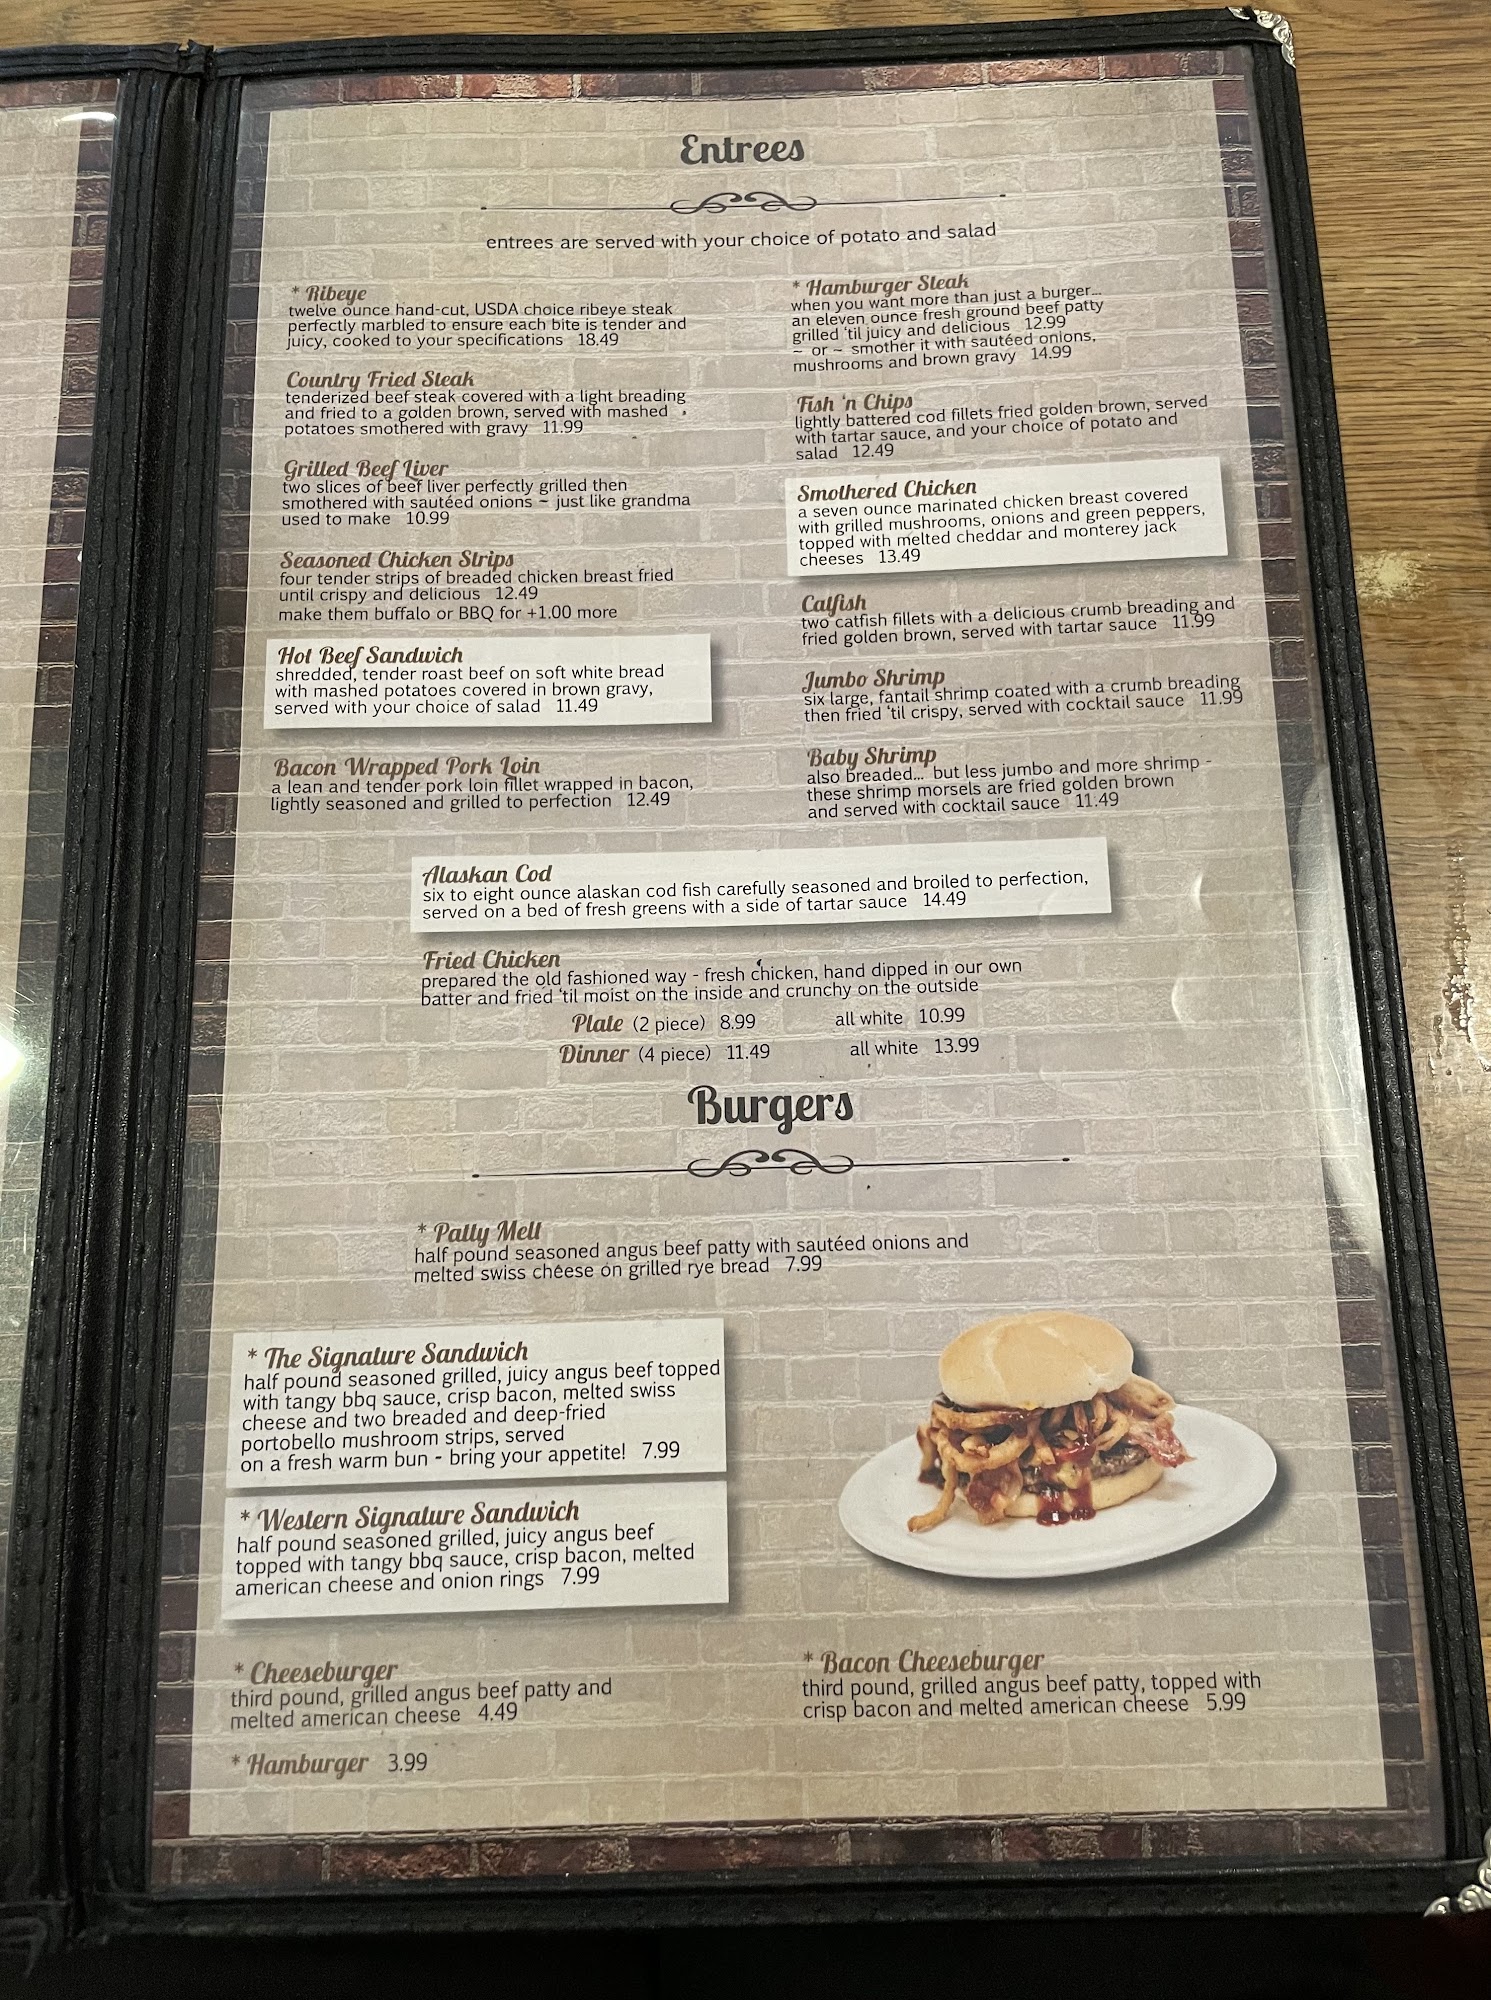 Entrees
entrees are served with your choice of potato and salad
* Ribeye
twelve ounce hand-cut, USDA choice ribeye steak
perfectly marbled to ensure each bite is tender and
juicy, cooked to your specifications 18.49
Country Fried Steak
tenderized beef steak covered with a light breading
and fried to a golden brown, served with mashed
potatoes smothered with gravy 11.99
Grilled Beef Liver
two slices of beef liver perfectly grilled then
smothered with sautéed onions ~ just like grandma
used to make 10.99
Seasoned Chicken Strips
four tender strips of breaded chicken breast fried
until crispy and delicious 12.49
make them buffalo or BBQ for +1.00 more
Hot Beef Sandwich
shredded, tender roast beef on soft white bread
with mashed potatoes covered in brown gravy,
served with your choice of salad 11.49
Bacon Wrapped Pork Loin
a lean and tender pork loin fillet wrapped in bacon,
lightly seasoned and grilled to perfection 12.49
* Hamburger Steak
when you want more than just a burger...
an eleven ounce fresh ground beef patty
grilled 'til juicy and delicious 12.99
~ or ~ smother it with sautéed onions,
mushrooms and brown gravy 14.99
Fish 'n Chips
lightly battered cod fillets fried golden brown, served
with tartar sauce, and your choice of potato and
salad 12.49
Smothered Chicken
a seven ounce marinated chicken breast covered
with grilled mushrooms, onions and green peppers,
topped with melted cheddar and monterey jack
cheeses 13.49
Catfish
two catfish fillets with a delicious crumb breading and
fried golden brown, served with tartar sauce 11.99
Jumbo Shrimp
six large, fantail shrimp coated with a crumb breading
then fried 'til crispy, served with cocktail sauce 11.99
Baby Shrimp
also breaded... but less jumbo and more shrimp -
these shrimp morsels are fried golden brown
and served with cocktail sauce 11.49
Alaskan Cod
six to eight ounce alaskan cod fish carefully seasoned and broiled to perfection,
served on a bed of fresh greens with a side of tartar sauce 14.49
Fried Chicken
prepared the old fashioned way - fresh chicken, hand dipped in our own
batter and fried 'til moist on the inside and crunchy on the outside
Plate (2 piece) 8.99 all white 10.99
Dinner (4 piece) 11.49 all white 13.99
Burgers
* Patty Melt
half pound seasoned angus beef patty with sautéed onions and
melted swiss cheese on grilled rye bread 7.99
* The Signature Sandwich
half pound seasoned grilled, juicy angus beef topped
with tangy bbq sauce, crisp bacon, melted swiss
cheese and two breaded and deep-fried
portobello mushroom strips, served
on a fresh warm bun - bring your appetite! 7.99
* Western Signature Sandwich
half pound seasoned grilled, juicy angus beef
topped with tangy bbq sauce, crisp bacon, melted
american cheese and onion rings 7.99
* Cheeseburger
third pound, grilled angus beef patty and
melted american cheese 4.49
* Hamburger 3.99
* Bacon Cheeseburger
third pound, grilled angus beef patty, topped with
crisp bacon and melted american cheese 5.99